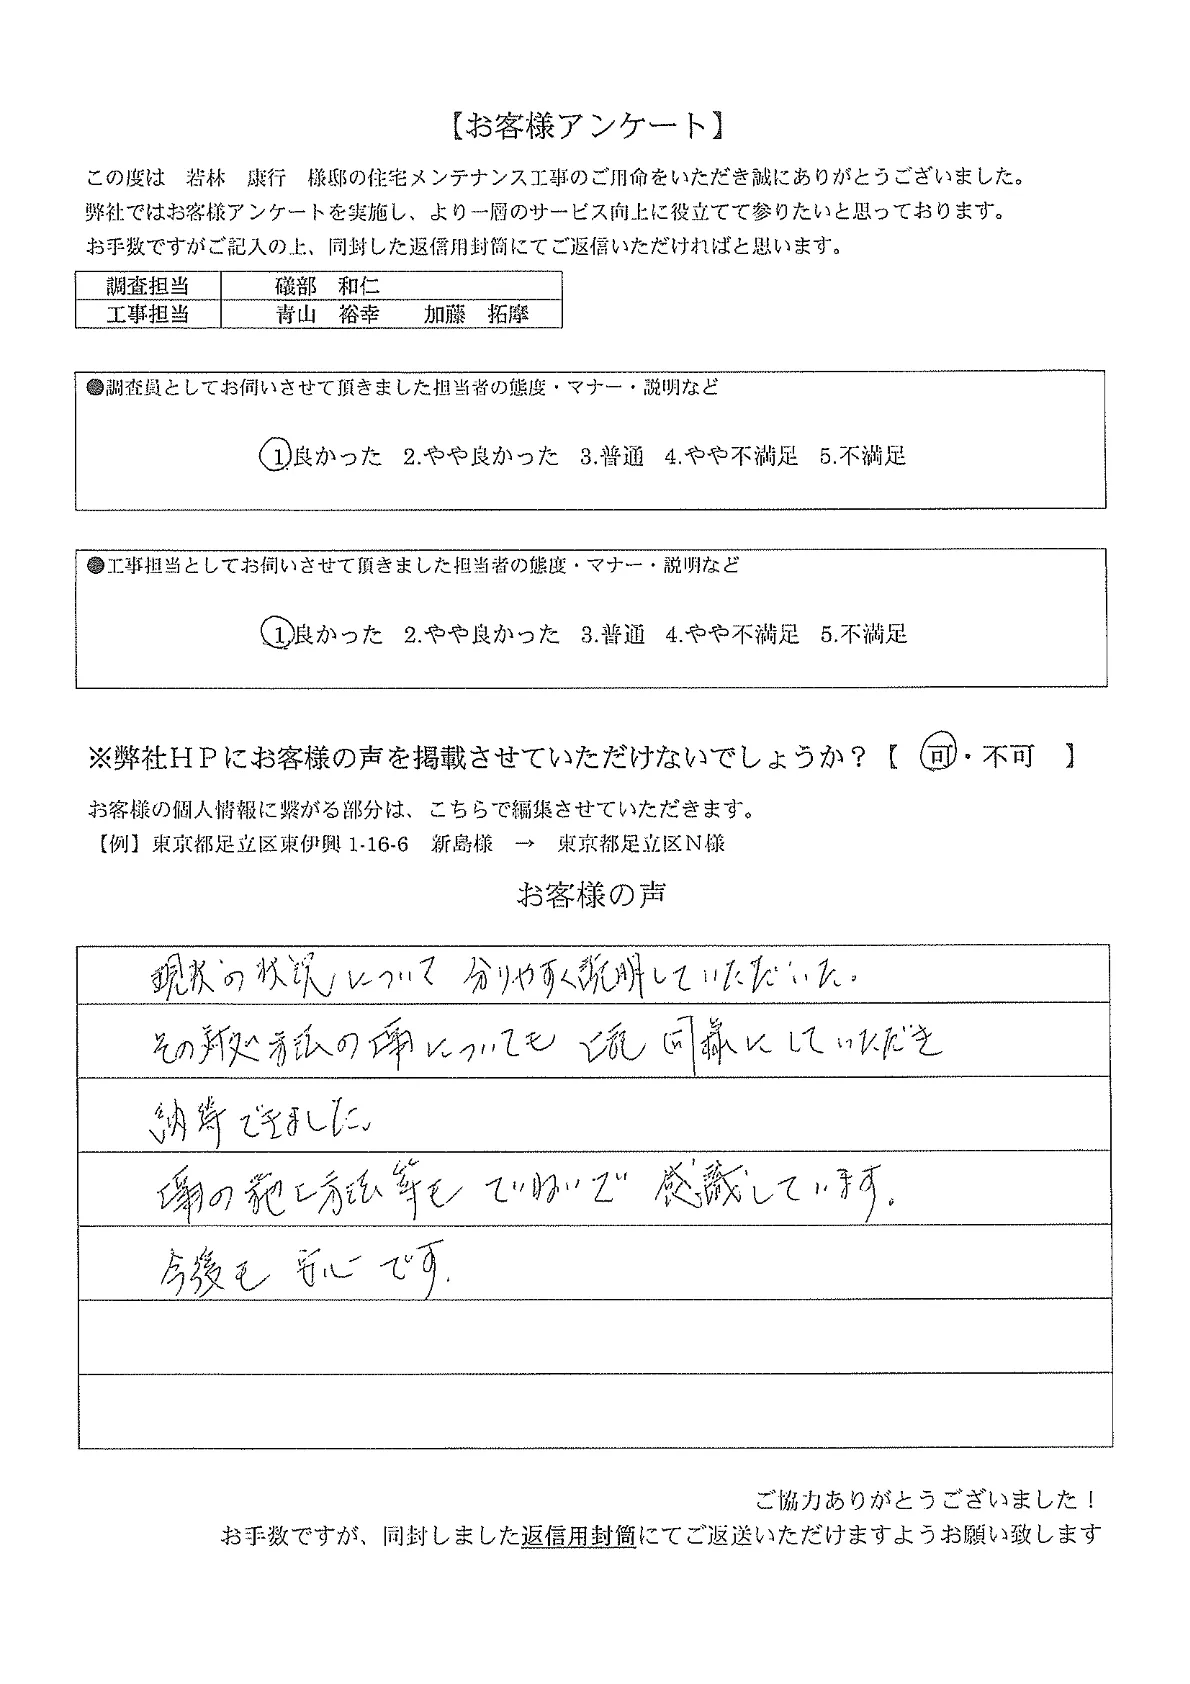 【お客様アンケート】
この度は　若林　康行　様邸の住宅メンテナンス工事のご用命をいただき誠にありがとうございました。
弊社ではお客様アンケートを実施し、より一層のサービス向上に役立てて参りたいと思っております。
お手数ですがご記入の上、同封した返信用封筒にてご返信いただければと思います。
調査担当　礒部　和仁
工事担当　青山　裕幸　加藤　拓摩
●調査員としてお伺いさせて頂きました担当者の態度・マナー・説明など
1.良かった 2.やや良かった 3.普通 4.やや不満足 5.不満足
●工事担当としてお伺いさせて頂きました担当者の態度・マナー・説明など
1.良かった 2.やや良かった 3.普通 4.やや不満足 5.不満足
※弊社ＨＰにお客様の声を掲載させていただけないでしょうか？【　可・不可　】
お客様の個人情報に繋がる部分は、こちらで編集させていただきます。
【例】東京都足立区東伊興 1-16-6　新島様　→　東京都足立区Ｎ様
お客様の声
現状の状況について 分りやすく説明していただいた。
その対処方法の事についても 上記 同様にしていただき
納得できました。
の施工方法等も ていねいで 感識しています。
今後も 安心です.
ご協力ありがとうございました！
お手数ですが、同封しました返信用封筒にてご返送いただけますようお願い致します